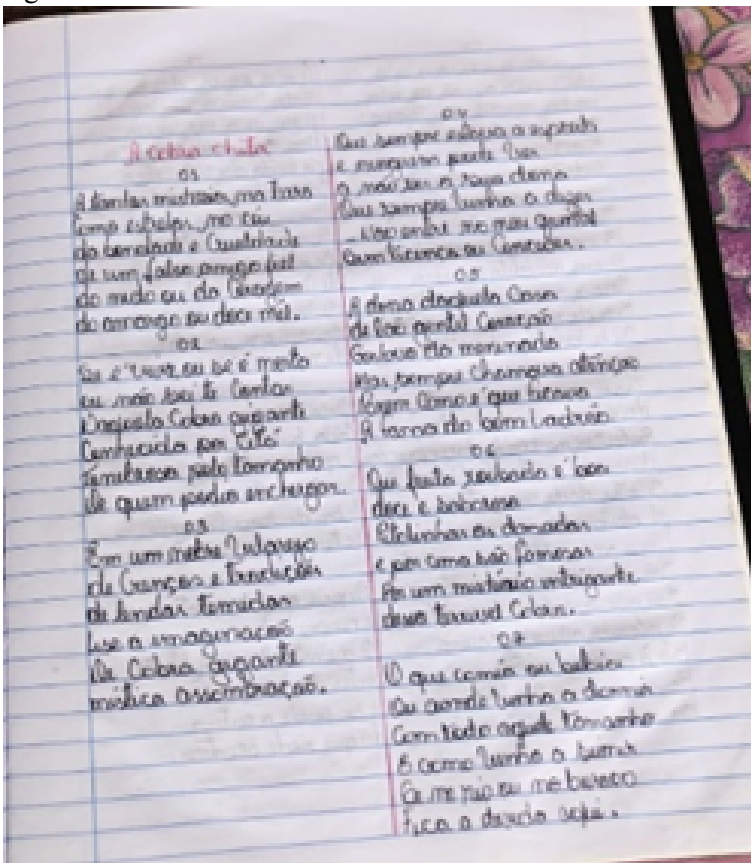 A cobra chita
01
A tantos mistérios, na Terra
Como estrelas, no céu
da bondade e Crueldade
de um falso amigo fiel
do medo ou da Coragem
do amargo ou doce mel.
02
Se é viva ou se é morta
eu não sei te Contar
Daquela Cobra gigante
Conhecida por
pelo tamanho
de quem podia enchergar.
03
Em um Vilarejo
de Crenças e Tradições
de lendas temidas
a imaginação
De Cobra gigante
mística assombração.
04
Que sempre estava a
e ninguém pode ver
a não ser a dona
Que sempre vinha a dizer
- Não entre no meu quintal
Sem licença
05
A dona daquela Casa
de gentil Coração
da meninada
Mas sempre Chamava atenção
Bem Como é que ficava
A fama do bom Ladrão
06
Que fruto roubado é bom
doce e saboroso
as danadas
e por cima são famosas
Por um mistério intrigante
dessa terrível Cobra.
07
O que comia ou bebia
Ou aonde vinha a dormir
Com todo aquele tamanho
E como vinha a sumir
Se no rio ou no buraco
Fica a dúvida aqui.